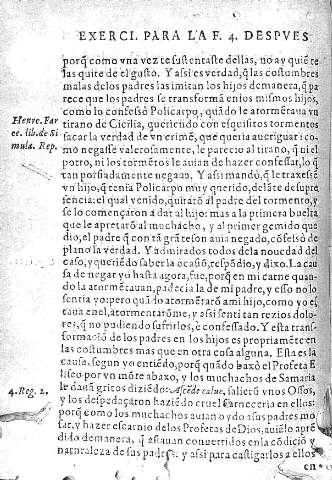 EXERCI. PARA LA F. 4. DESPVES
porq̃ como vna vez te sustentaste dellas, no ay quiẽ te
las quite de el gusto. Y assi es verdad, q̃ las costumbres
malas delos padres las imitan los hijos demanera, q̃ pa
rece que los padres se transformã en los mismos hijos,
como lo confessò Policarpo, quãdo le atormẽtaua vn
tirano de Cicilia, queriendo con exquisitos tormentos
sacar la verdad de vn crimẽ, que queria aueriguar: co
mo negasse valerosamente, le parecio al tirano, q̃ ni el
potro, ni los tormẽtos le auian de hazer confessar, lo q̃
tan porfiadamente negaua. Y assi mandò, q̃ le traxessẽ
vn hijo, q̃ tenia Policarpo muy querido, delãte de su pre
sencia: el qual venido, quitarõ al padre del tormento, y
se lo començaron a dar al hijo: mas a la primera buelta
que le apretarõ al muchacho, y al primer gemido que
dio, el padre q̃ con tã grã teson auia negado, cõfesò de
plano la verdad. Y admirados todos dela nouedad del
caso, y queriẽdo saber la ocasiõ, respõdio, y dixo. La cau
sa de negar yo hasta agora, fue, porq̃ en mi carne quan
do la atormẽtauan, padecia la de mi padre, y esso no lo
sentia yo: pero quãdo atormẽtarõ ami hijo, como yo es
taua enel, atormentarõme, y assi senti tan rezios dolo-
res, q̃ no pudiendo sufrirlos, è confessado. Y esta trans
formaciõ de los padres en los hijos es propriamẽte en
las costumbres mas que en otra cosa alguna. Esta es la
causa, segun yo entiẽdo, porq̃ quãdo baxò el Profeta E
liseo por vn mõte abaxo, y los muchachos de Samaria
le dauã gritos diziẽdo: Ascẽde calue, salierõ vnos Ossos,
y los despedaçaron haziẽdo cruel carneceria en ellos:
porq̃ como los muchachos auian oydo a sus padres mo
far, y hazer escarnio delos Profetas de Dios, auiãlo aprẽ
dido demanera, q̃ estauan conuertidos en la cõdiciõ y
naturaleza de sus padres, y assi para castigarlos a ellos
en
Henrc. Far
er. lib. de Si
mula. Rep.
4. Reg. 2.